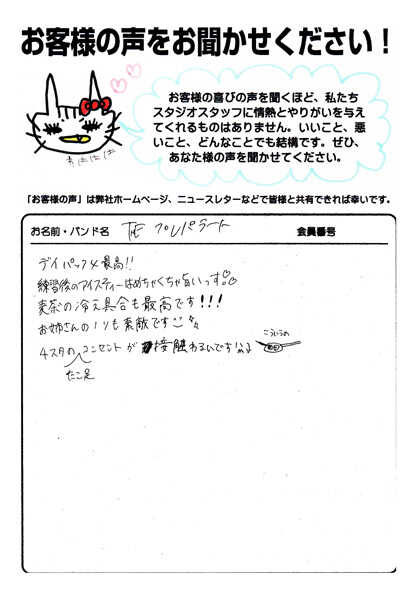 お客様の声をお聞かせください！
お客様の喜びの声を聞くほど、私たち
スタジオスタッフに情熱とやりがいを与え
てくれるものはありません。いいこと、悪
いこと、どんなことでも結構です。ぜひ、
あなた様の声を聞かせてください。
「お客様の声」は弊社ホームページ、ニュースレターなどで皆様と共有できれば幸いです。
お名前・バンド名 THE プレパラート 会員番号
デイパック最高!!
練習後のアイスティーはめちゃくちゃ旨いっす
麦茶の冷え具合も最高です!!!
お姉さんのノリも素敵です
4スタの コンセント が 接触わるいです
たこ足
こういうの